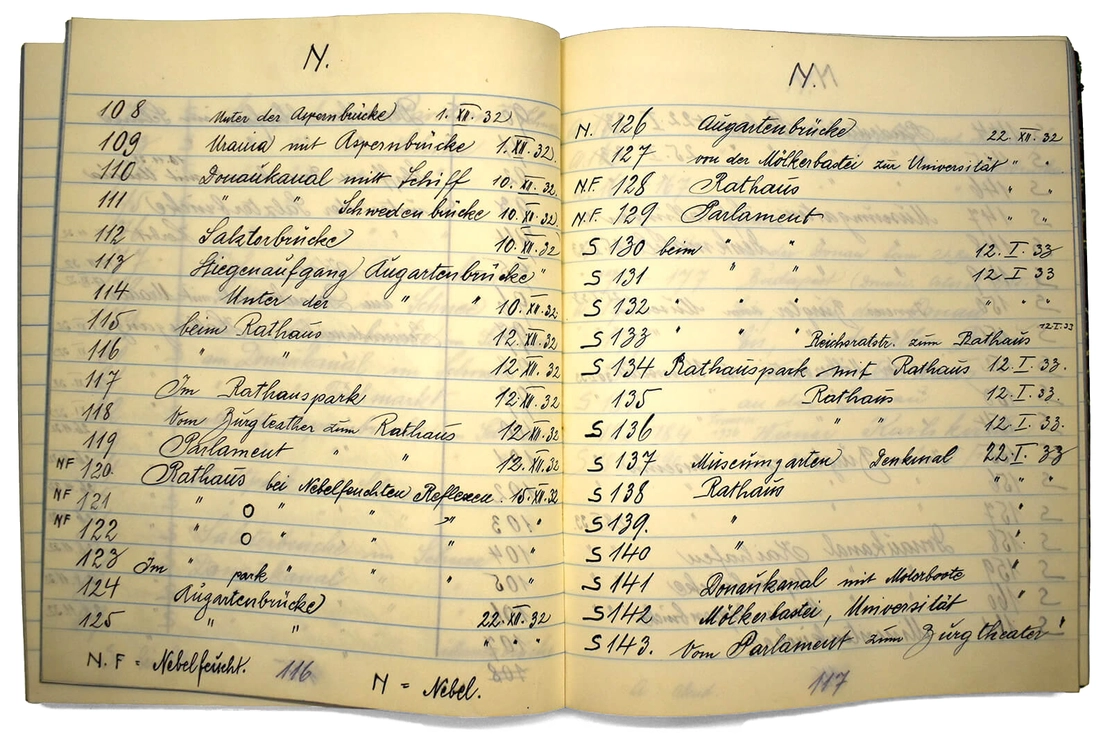 N.
108 Unter der Aspernbrücke 1. XII. 32
109 Urania mit Aspernbrücke 1. XII. 32.
110 Donaukanal mitt Schiff 10. XII. 32.
111 " " Schwedenbrücke 10. XII. 32
112 Salztorbrücke 10. XII. 32
113 Stiegenaufgang Augartenbrücke "
114 Unter der " " 10. XII. 32
115 beim Rathaus 12. XII. 32
116 " " 12. XII. 32
117 Im Rathauspark 12. XII. 32
118 Vom Burgteather zum Rathaus 12. XII. 32
119 Parlament " " 12. XII. 32
NF 120. Rathaus bei Nebelfeuchten Reflexen. 15. XII. 32
NF 121 " O " " "
NF 122 " O " " "
123 Im " park " " "
124 Augartenbrücke 22. XII. 32
125 " " " " "
N. F = Nebelfeucht. 116
N = Nebel.
N.
N. 126 Augartenbrücke 22. XII. 32
127 von der Mölkerbastei zur Universität " "
N.F. 128 Rathaus " "
N.F. 129 Parlament " "
S 130 beim " " 12. I. 33
S 131 " " 12 I 33
S 132 " " " " " "
S 133 " " Reichsratstr. zum Rathaus 12. I. 33
S 134 Rathauspark mit Rathaus 12. I. 33.
135 Rathaus 12. I. 33.
S 136 " " 12. I. 33.
S 137 Museumgarten Denkmal 22. I. 33
S 138 Rathaus " " "
S 139. " "
S 140 " "
S 141 Donaukanal mit Motorboote "
S 142 Mölkerbastei, Universität "
S 143. Vom Parlament zum Burgtheater "
117